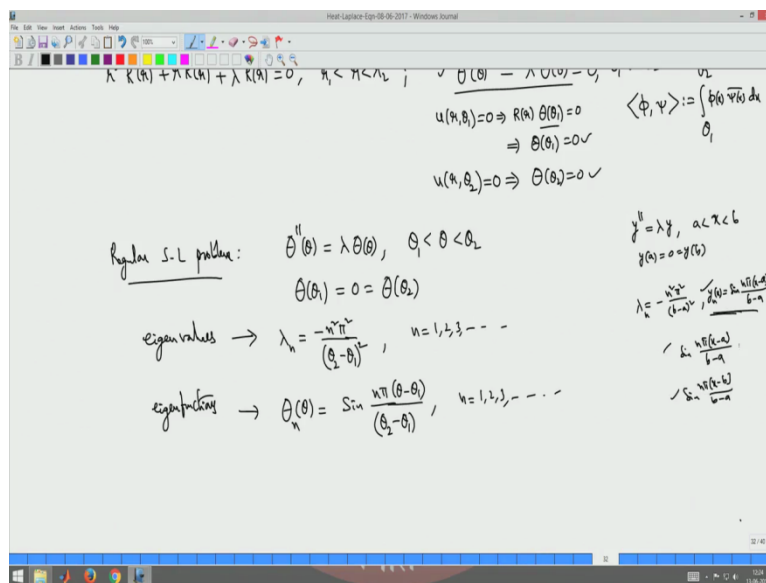 Heat-Laplace-Eqn-08-06-2017 - Windows Journal
File Edit View Insert Actions Tools Help
100%
B I
R(r) + r R(r) + λ R(r) = 0, r₁ < r < r₂ ; ✓ θ(θ) - λ θ(θ) = 0,
u(r,θ₁)=0 ⇒ R(r) θ(θ₁) = 0
⇒ θ(θ₁) = 0 ✓
u(r,θ₂)=0 ⇒ θ(θ₂)=0 ✓
<φ,ψ> := ∫ φ(x) ψ(x) dx
θ₁
Regular S-L problem: θ''(θ) = λ θ(θ), θ₁ < θ < θ₂
θ(θ₁) = 0 = θ(θ₂)
eigenvalues → λₙ = -n²π²/(θ₂-θ₁)², n = 1,2,3,- - - -
eigenfunctions → θₙ(θ) = Sin nπ(θ-θ₁)/(θ₂-θ₁), n = 1,2,3,- - - - -
y'' = λy, a < x < b
y(a) = 0 = y(b)
λₙ = -n²π²/(b-a)², ✓ yₙ(x) = Sin nπ(x-a)/b-a
✓ Sin nπ(x-a)/b-a
✓ Sin nπ(x-b)/b-a
32
32/40
12:24